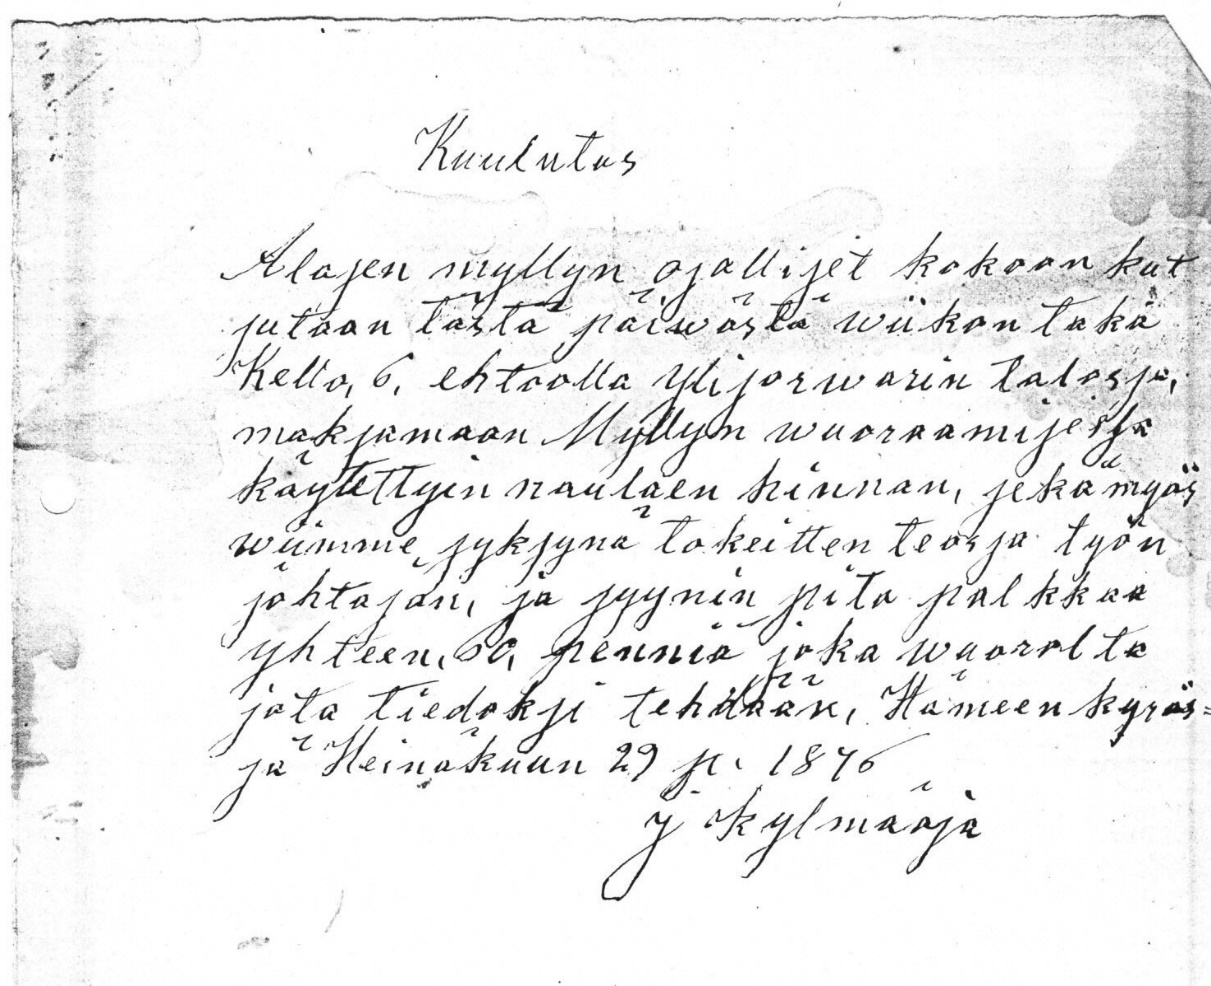 Kuulutus
Alasen myllyn osalliset kokoon kut
sutaan tästä päiwästä wiikon takä
Kello, 6, ehtoolla ylisorwarin talossa,
maksamaan Myllyn wuoraamisessa
käytettyin naulaen hinnan, sekä myös
wiimme syksynä tokeitten teossa työn
johtajan, ja syynin pito palkkaa
yhteen, 50, penniä joka wuorolta
jota tiedoksi tehdään, Hämeenkyrös=
sä Heinäkuun 29 p. 1876
J Kylmäoja